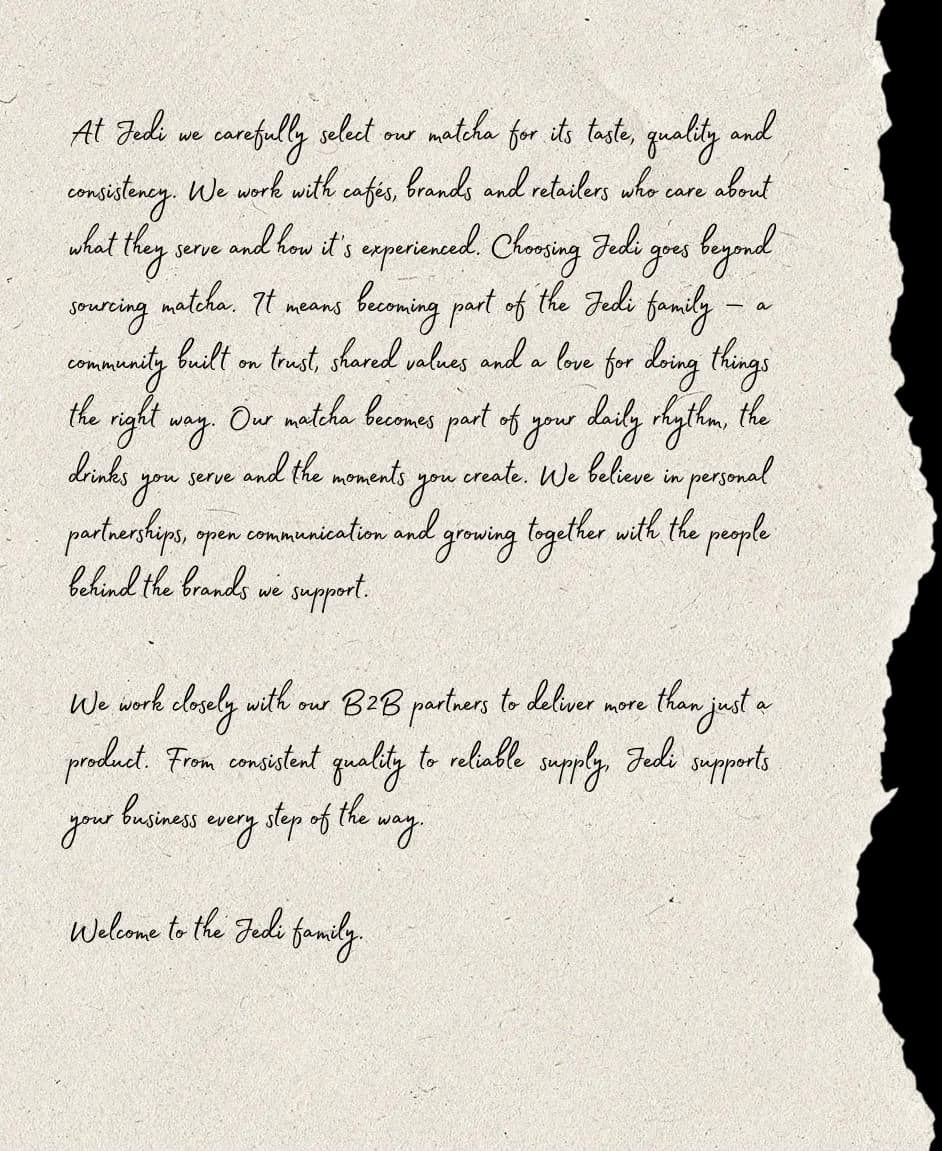 At Jedi we carefully select our matcha for its taste, quality and
consistency. We work with cafés, brands and retailers who care about
what they serve and how it's experienced. Choosing Jedi goes beyond
sourcing matcha. It means becoming part of the Jedi family – a
community built on trust, shared values and a love for doing things
the right way. Our matcha becomes part of your daily rhythm, the
drinks you serve and the moments you create. We believe in personal
partnerships, open communication and growing together with the people
behind the brands we support.
We work closely with our B2B partners to deliver more than just a
product. From consistent quality to reliable supply, Jedi supports
your business every step of the way.
Welcome to the Jedi family.